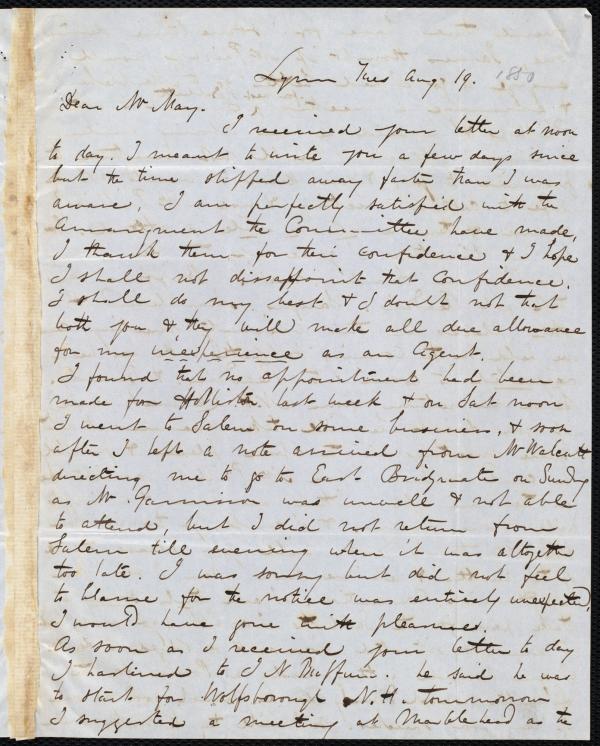 Lynn Tues Aug 19. 1850
Dear Mr May.
I received your letter at noon
to day. I meant to write you a few days since
but the time slipped away faster than I was
aware, I am perfectly satisfied with the
Arrangment the Committee have made,
I thank them for their confidence & I hope
I shall not dissappoint that confidence.
I shall do my best & I doubt not that
both you & they will make all due allowance
for my inexperience as an Agent.
I found that no appointment had been
made for Holliston last week & on Sat noon
I went to Salem on some business, & soon
after I left a note arrived from Mr Walcutt
directing me to go to East Bridgwater on Sunday
as Mr. Garrison was unwell & not able
to attend, but I did not return from
Salem till evening when it was altogether
too late. I was sorry but did not feel
to blame for the notice was entirely unexpected,
I would have gone with pleasure.
As soon as I received your letter to day
I hastened to J N Buffum. he said he was
to start for Wolfsborough N.H. tommorrow
I suggested a meeting at Marblehead as the